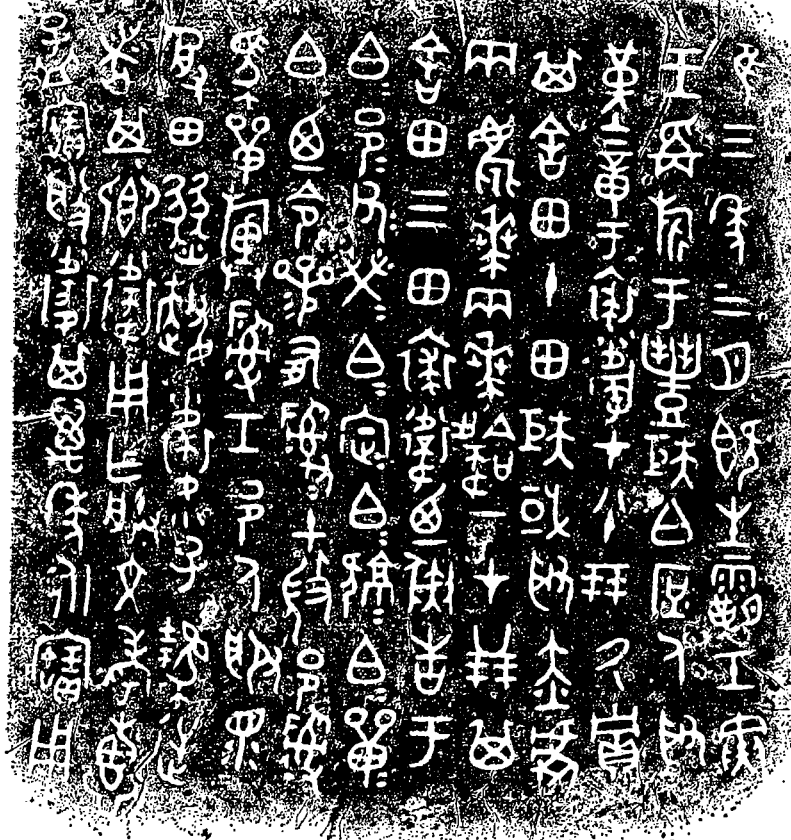 隹三年三月既生霸壬寅
王爯旂于豐矩白庶人取
堇章于裘衛才八十朋氒貯
其舍田十田矩或取赤虎
兩麀𠦪兩𠦪韐一才廿朋其
舍田三田裘衛乃彘告于
白邑父榮白定白𤞷白單
白乃令參有𤔲𤔲土微邑𤔲
馬單旟𤔲工邑人服眔
受田燹趞衛小子逆
者其鄉衛用乍朕文考惠
孟寶般衛其萬年永寶用